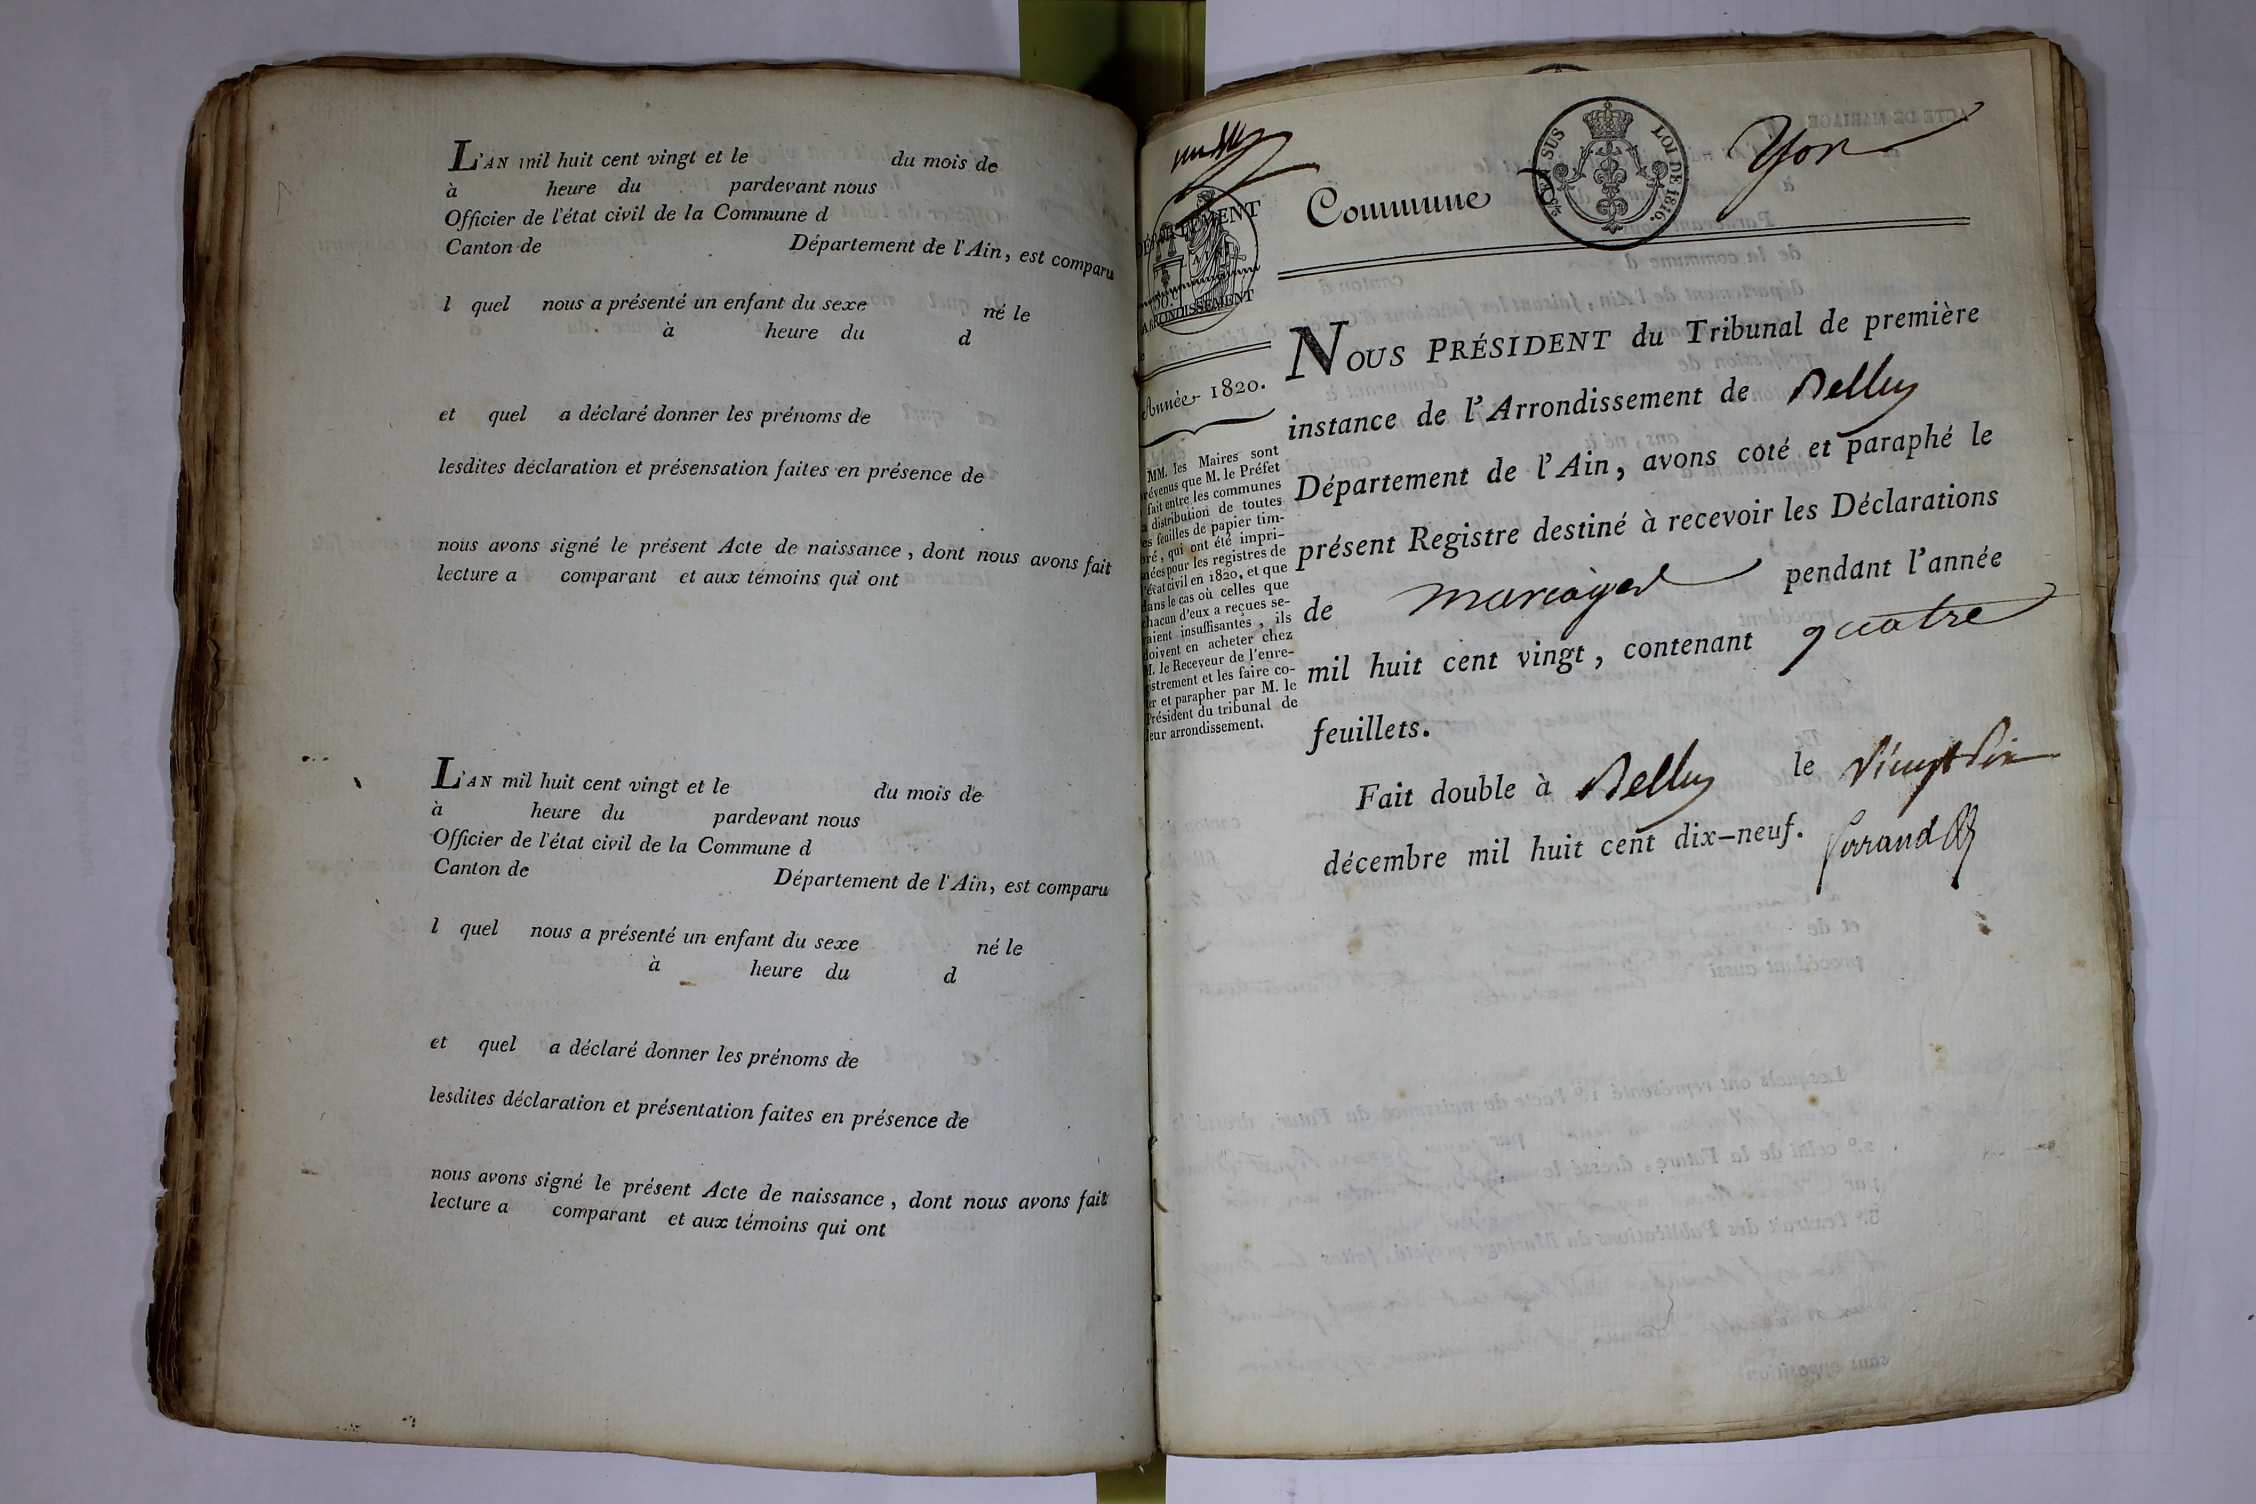 L'AN mil huit cent vingt et le du mois de
à heure du pardevant nous
Officier de l'état civil de la Commune d
Canton de Département de l'Ain, est comparu
l quel nous a présenté un enfant du sexe né le
à heure du d
et quel a déclaré donner les prénoms de
lesdites déclaration et présensation faites en présence de
nous avons signé le présent Acte de naissance, dont nous avons fait
lecture a comparant et aux témoins qui ont
L'AN mil huit cent vingt et le du mois de
à heure du pardevant nous
Officier de l'état civil de la Commune d
Canton de Département de l'Ain, est comparu
l quel nous a présenté un enfant du sexe né le
à heure du d
et quel a déclaré donner les prénoms de
lesdites déclaration et présentation faites en présence de
nous avons signé le présent Acte de naissance, dont nous avons fait
lecture a comparant et aux témoins qui ont
DÉPARTEMENT
ARRONDISSEMENT
Année 1820.
MM. les Maires sont
prévenus que M. le Préfet
fait entre les communes
distribution de toutes
feuilles de papier tim-
bré, qui ont été impri-
mées pour les registres de
l'état civil en 1820, et que
dans le cas où celles que
chacun d'eux a reçues se-
raient insuffisantes, ils
doivent en acheter chez
M. le Receveur de l'enre-
gistrement et les faire co-
ter et parapher par M. le
Président du tribunal de
leur arrondissement.
Commune d Yon
SUS LOI DE 1816.
NOUS PRÉSIDENT du Tribunal de première
instance de l'Arrondissement de Belley
Département de l'Ain, avons coté et paraphé le
présent Registre destiné à recevoir les Déclarations
de mariages pendant l'année
mil huit cent vingt, contenant quatre
feuillets.
Fait double à Belley le vingt six
décembre mil huit cent dix-neuf.